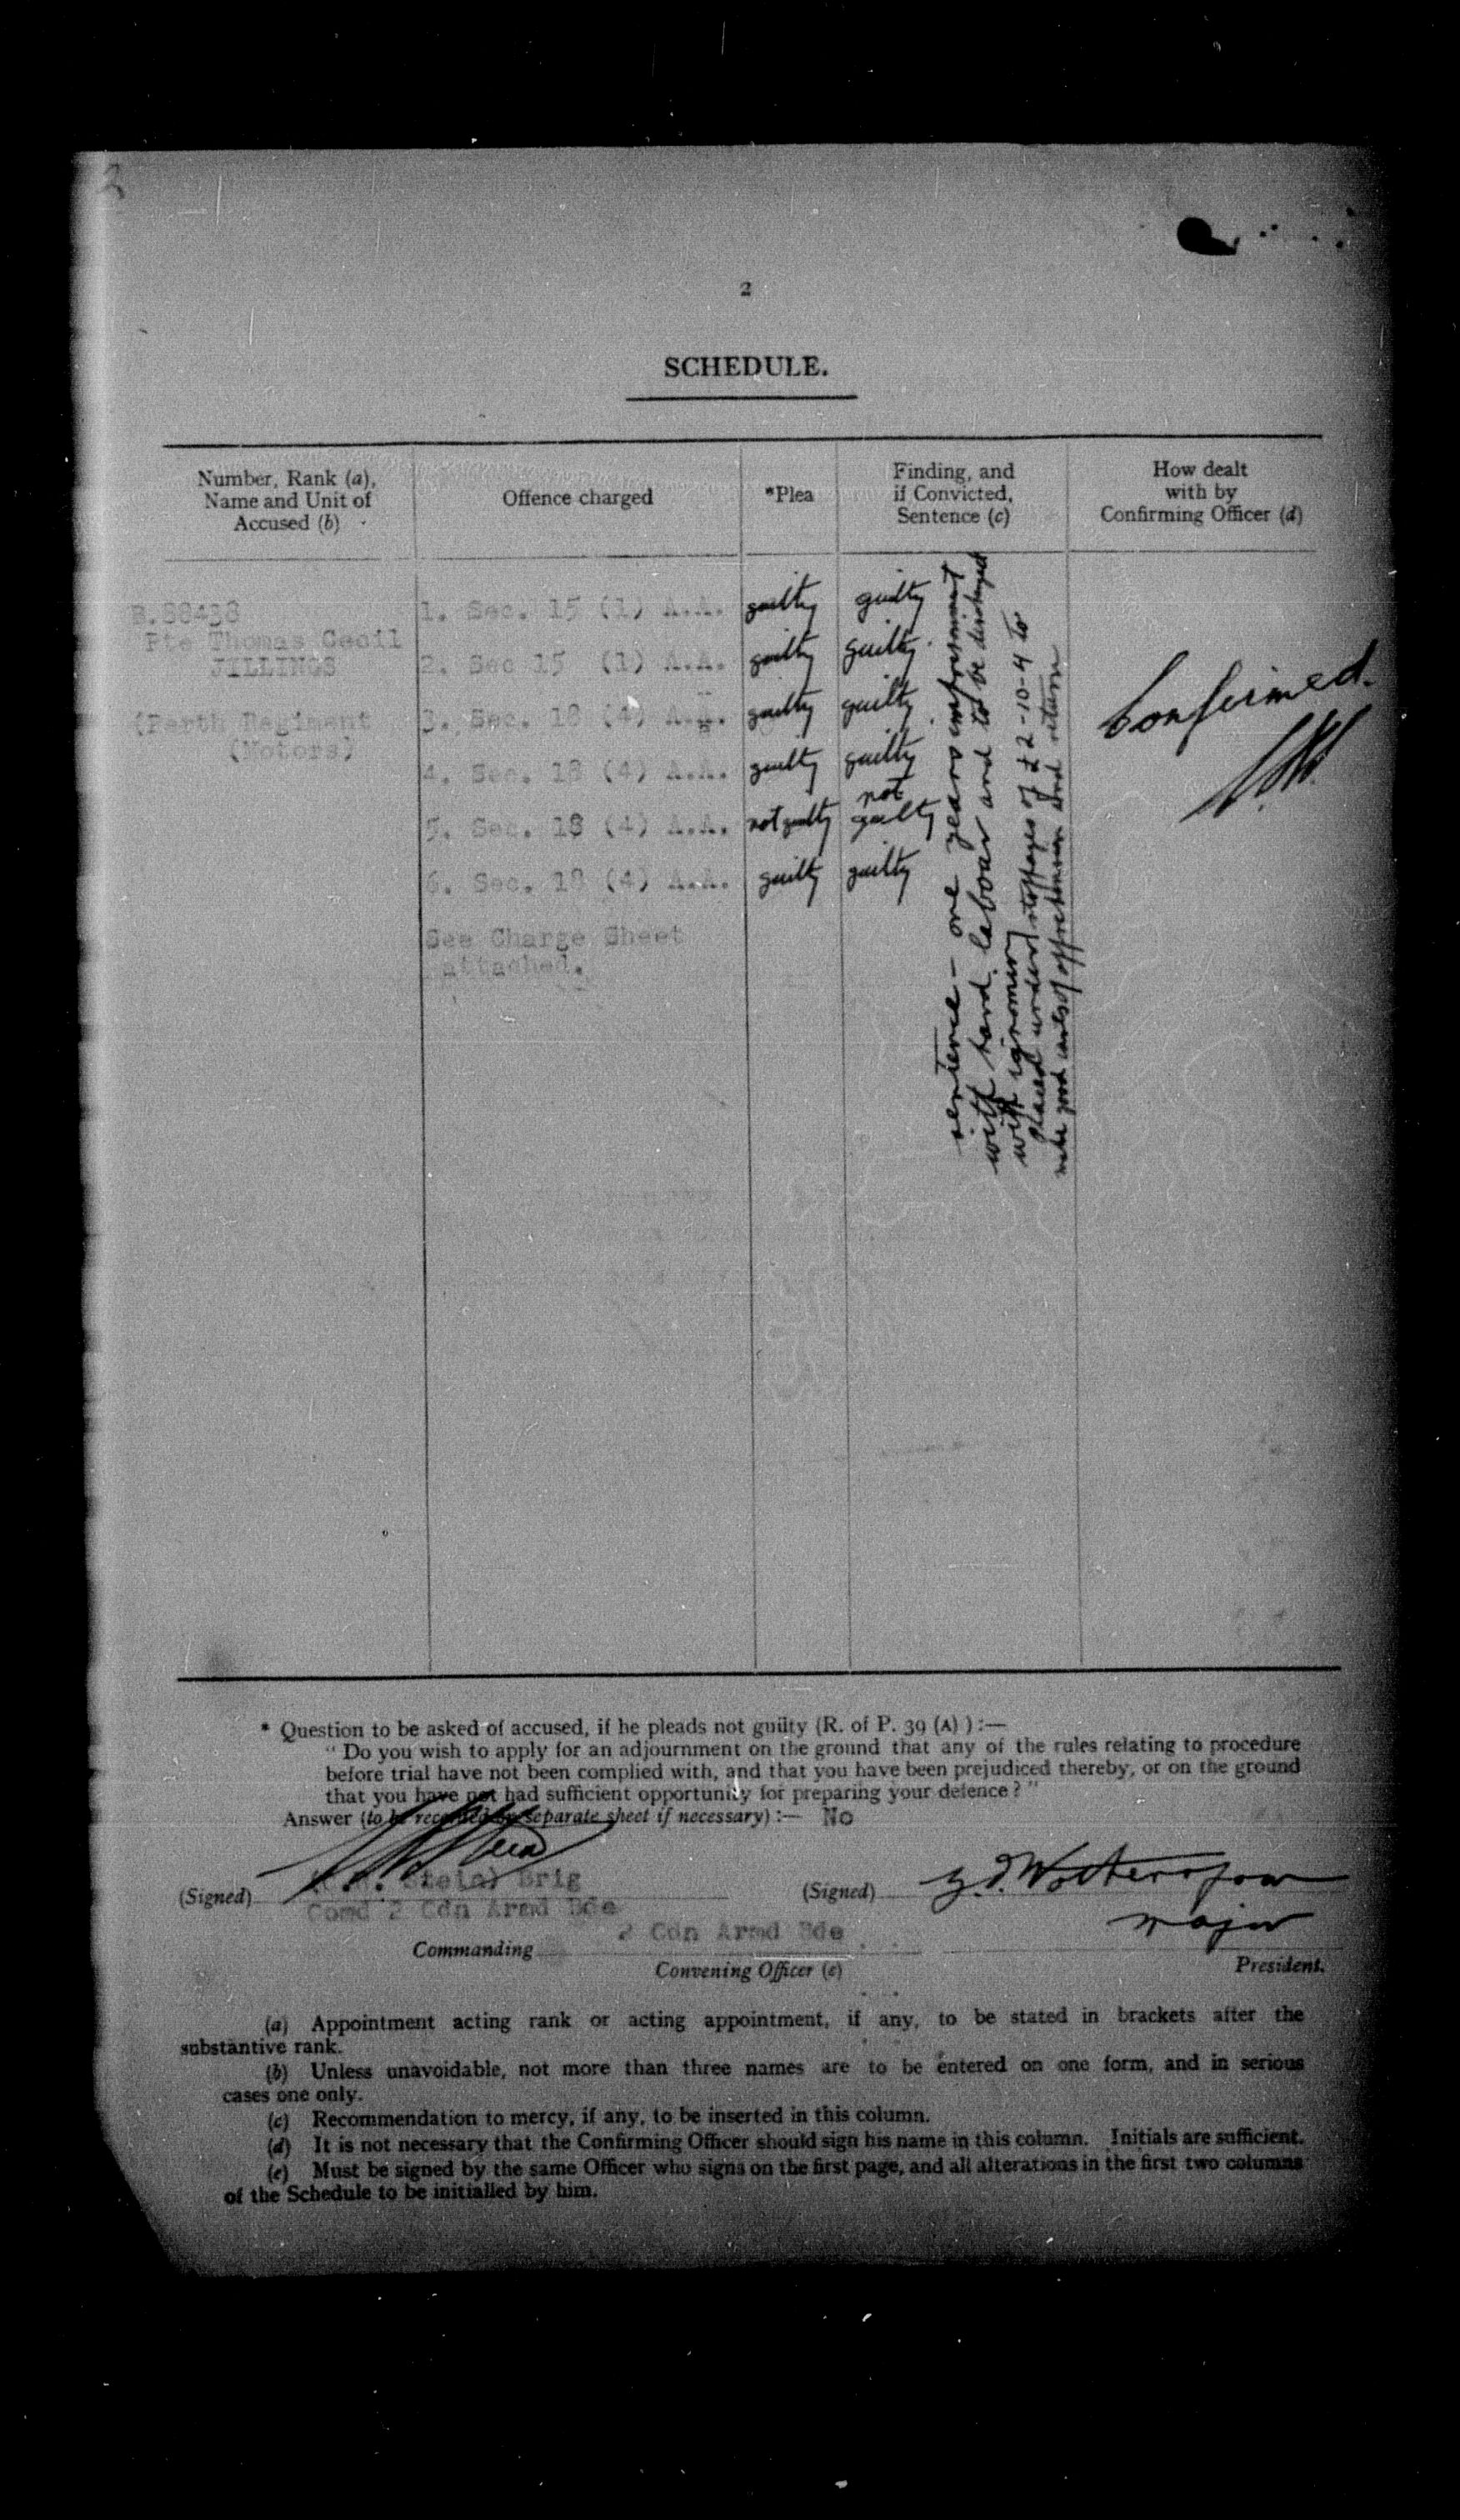 2
SCHEDULE.
Number, Rank (a),
Name and Unit of
Accused (b)
Offence charged
*Plea
Finding, and
if Convicted,
Sentence (c)
How dealt
with by
Confirming Officer (d)
Pte Thomas Cecil
JILLINGS
(Perth Regiment
(Motors)
1. Sec. 15 (1) A.A. guilty guilty
2. Sec 15 (1) A.A. guilty guilty
3. Sec. 18 (4) A.A. guilty guilty
4. Sec. 18 (4) A.A. guilty guilty
5. Sec. 18 (4) A.A. not guilty not guilty
6. Sec. 18 (4) A.A. guilty guilty
See Charge Sheet
attached.
sentence - one years imprisonment
with hard labour and to be discharged
with ignominy
placed under stoppages of £2-10-4 to
make good costs of apprehension and return
Confirmed.
* Question to be asked of accused, if he pleads not guilty (R. of P. 39 (A) ) :—
" Do you wish to apply for an adjournment on the ground that any of the rules relating to procedure
before trial have not been complied with, and that you have been prejudiced thereby, or on the ground
that you have not had sufficient opportunity for preparing your defence ? "
Answer (to be recorded on separate sheet if necessary) :— No
(Signed) Brig
Comd 2 Cdn Armd Bde
Commanding 2 Cdn Armd Bde
Convening Officer (e)
(Signed) G.D. Wotherspoon
major
President.
(a) Appointment acting rank or acting appointment, if any, to be stated in brackets after the
substantive rank.
(b) Unless unavoidable, not more than three names are to be entered on one form, and in serious
cases one only.
(c) Recommendation to mercy, if any, to be inserted in this column.
(d) It is not necessary that the Confirming Officer should sign his name in this column. Initials are sufficient.
(e) Must be signed by the same Officer who signs on the first page, and all alterations in the first two columns
of the Schedule to be initialled by him.